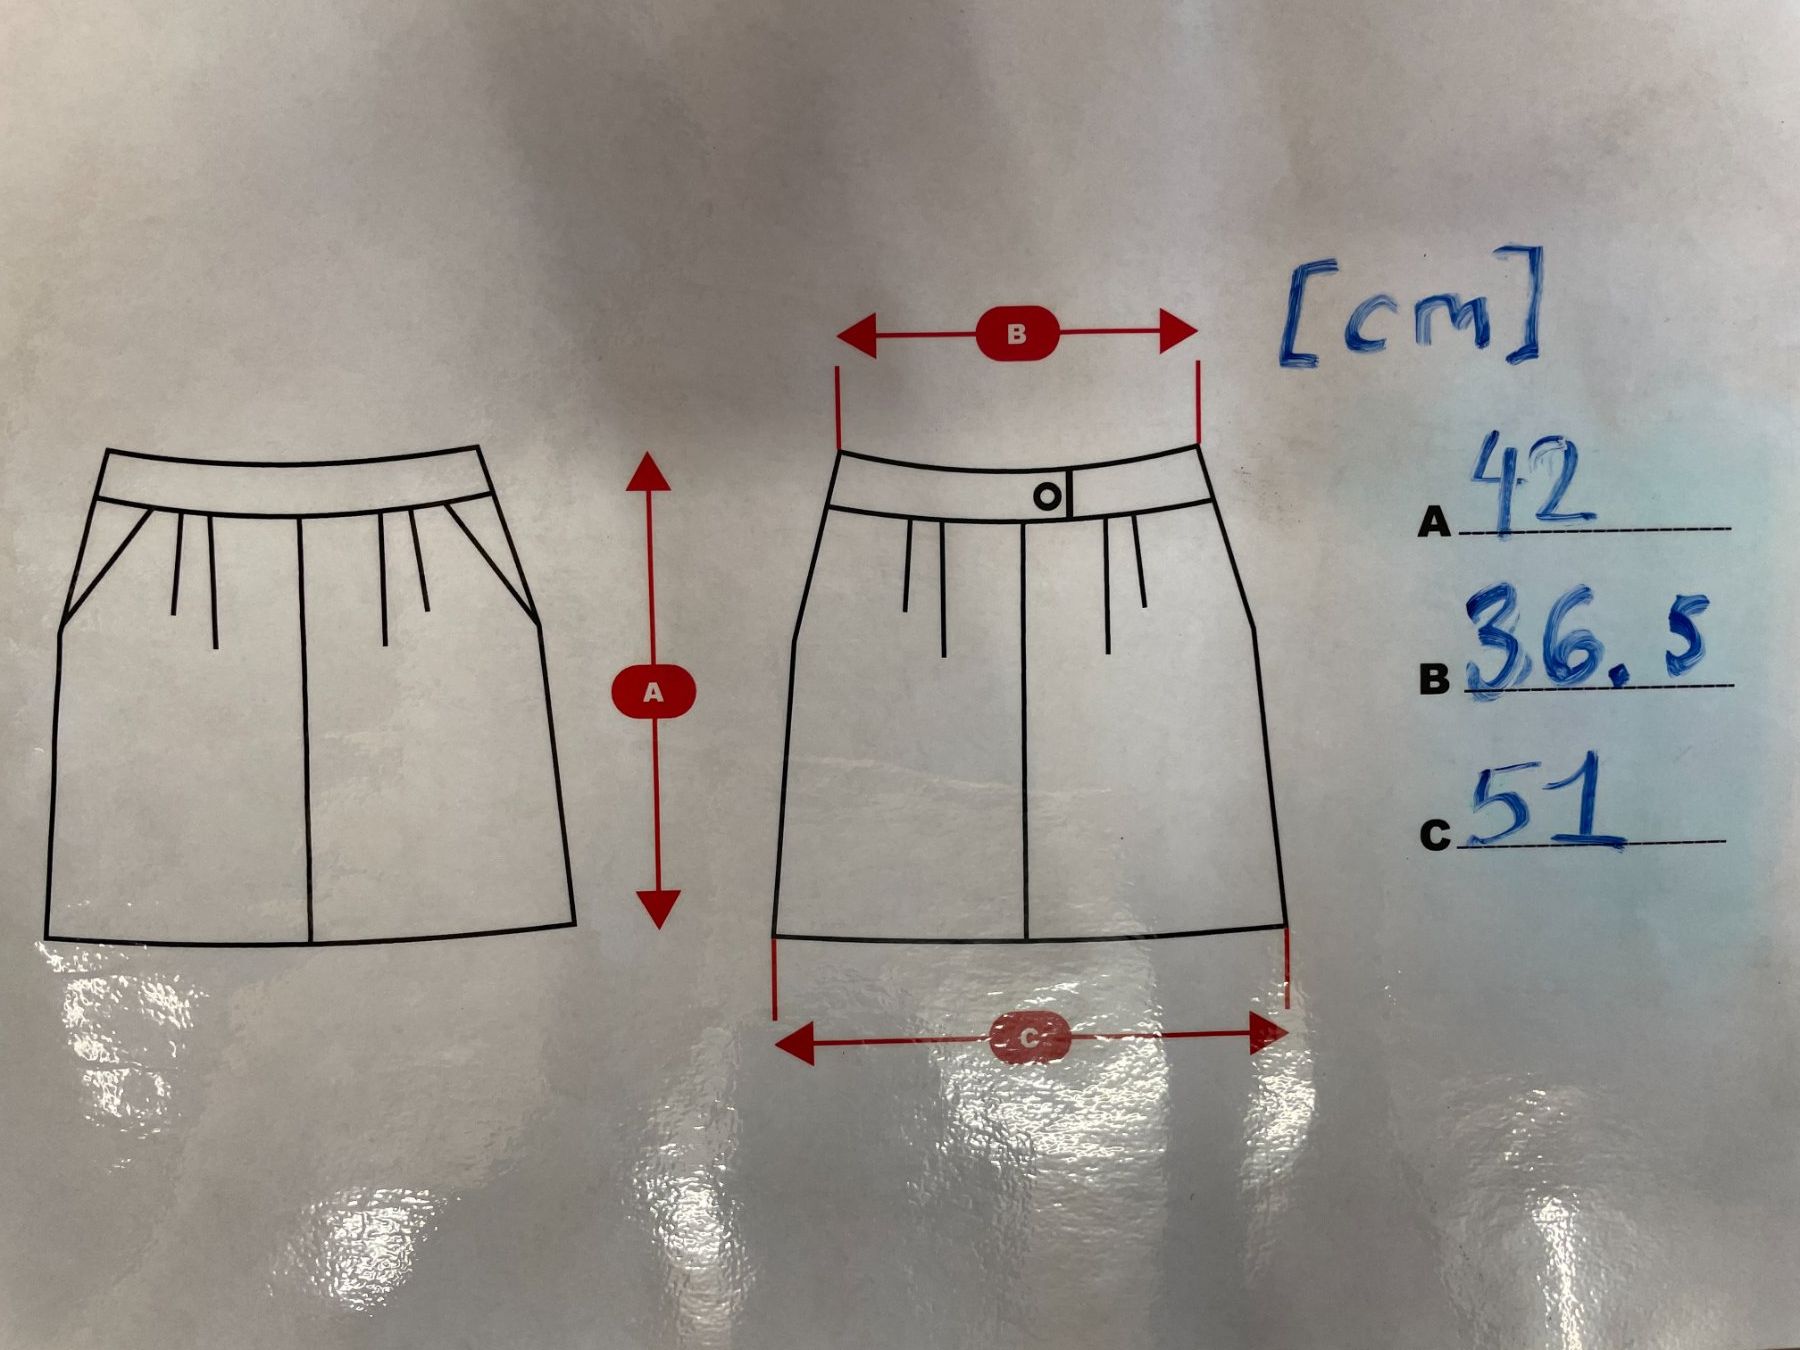 B
[cm]
A 42
A
B 36.5
C 51
C